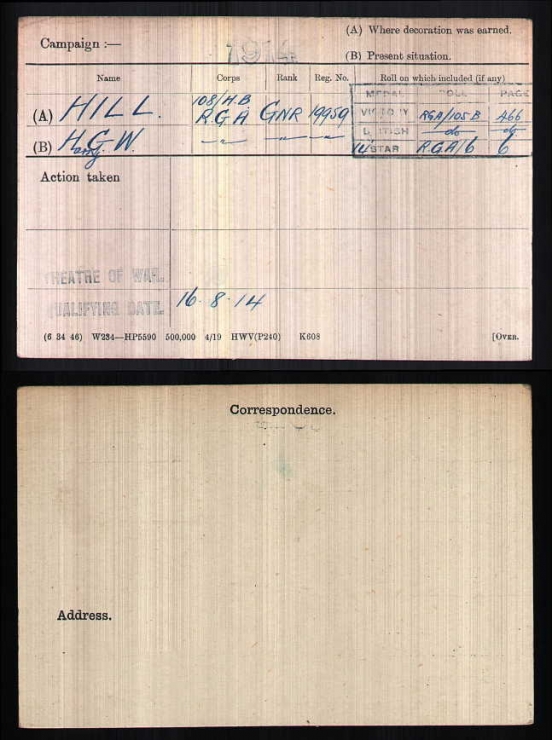 (A) Where decoration was earned.
Campaign :— 1914
(B) Present situation.
Name Corps Rank Reg. No. Roll on which included (if any)
MEDAL ROLL PAGE
(A) HILL. 108/H.B. R.G.A GNR 19959 VICTORY RGA/105B 466
BRITISH do do
(B) Harry G. W. " " " 14 STAR R.G.A/6 6
Action taken
THEATRE OF WAR.
QUALIFYING DATE. 16.8.14
(6 34 46) W234—HP5590 500,000 4/19 HWV(P240) K608 [OVER.
Correspondence.
Address.